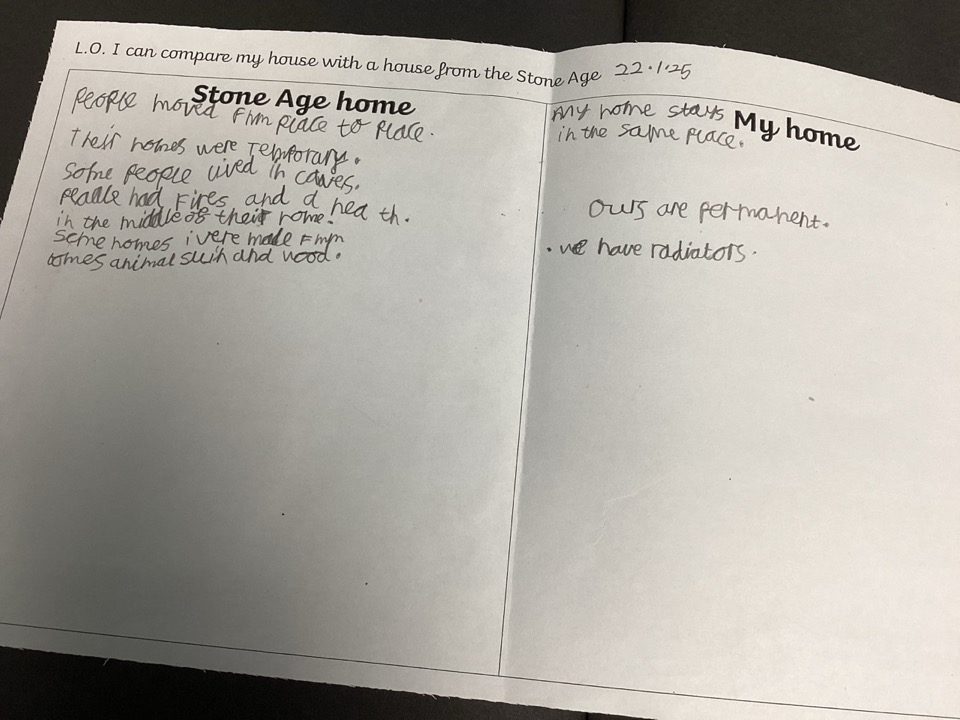 L.O. I can compare my house with a house from the Stone Age 22.1.25
Stone Age home
People moved from place to place.
Their homes were Temporary.
some people lived in caves.
people had Fires and a hea th.
in the middle of their home!
some homes were made From
bones animal skin and wood.
My home
My home stays
in the same place.
Ours are permanent.
. we have radiators.